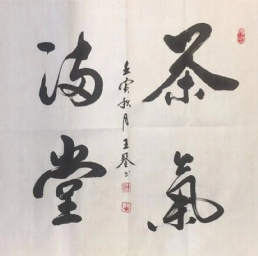 茶氣
满堂
壬寅秋月王琴书